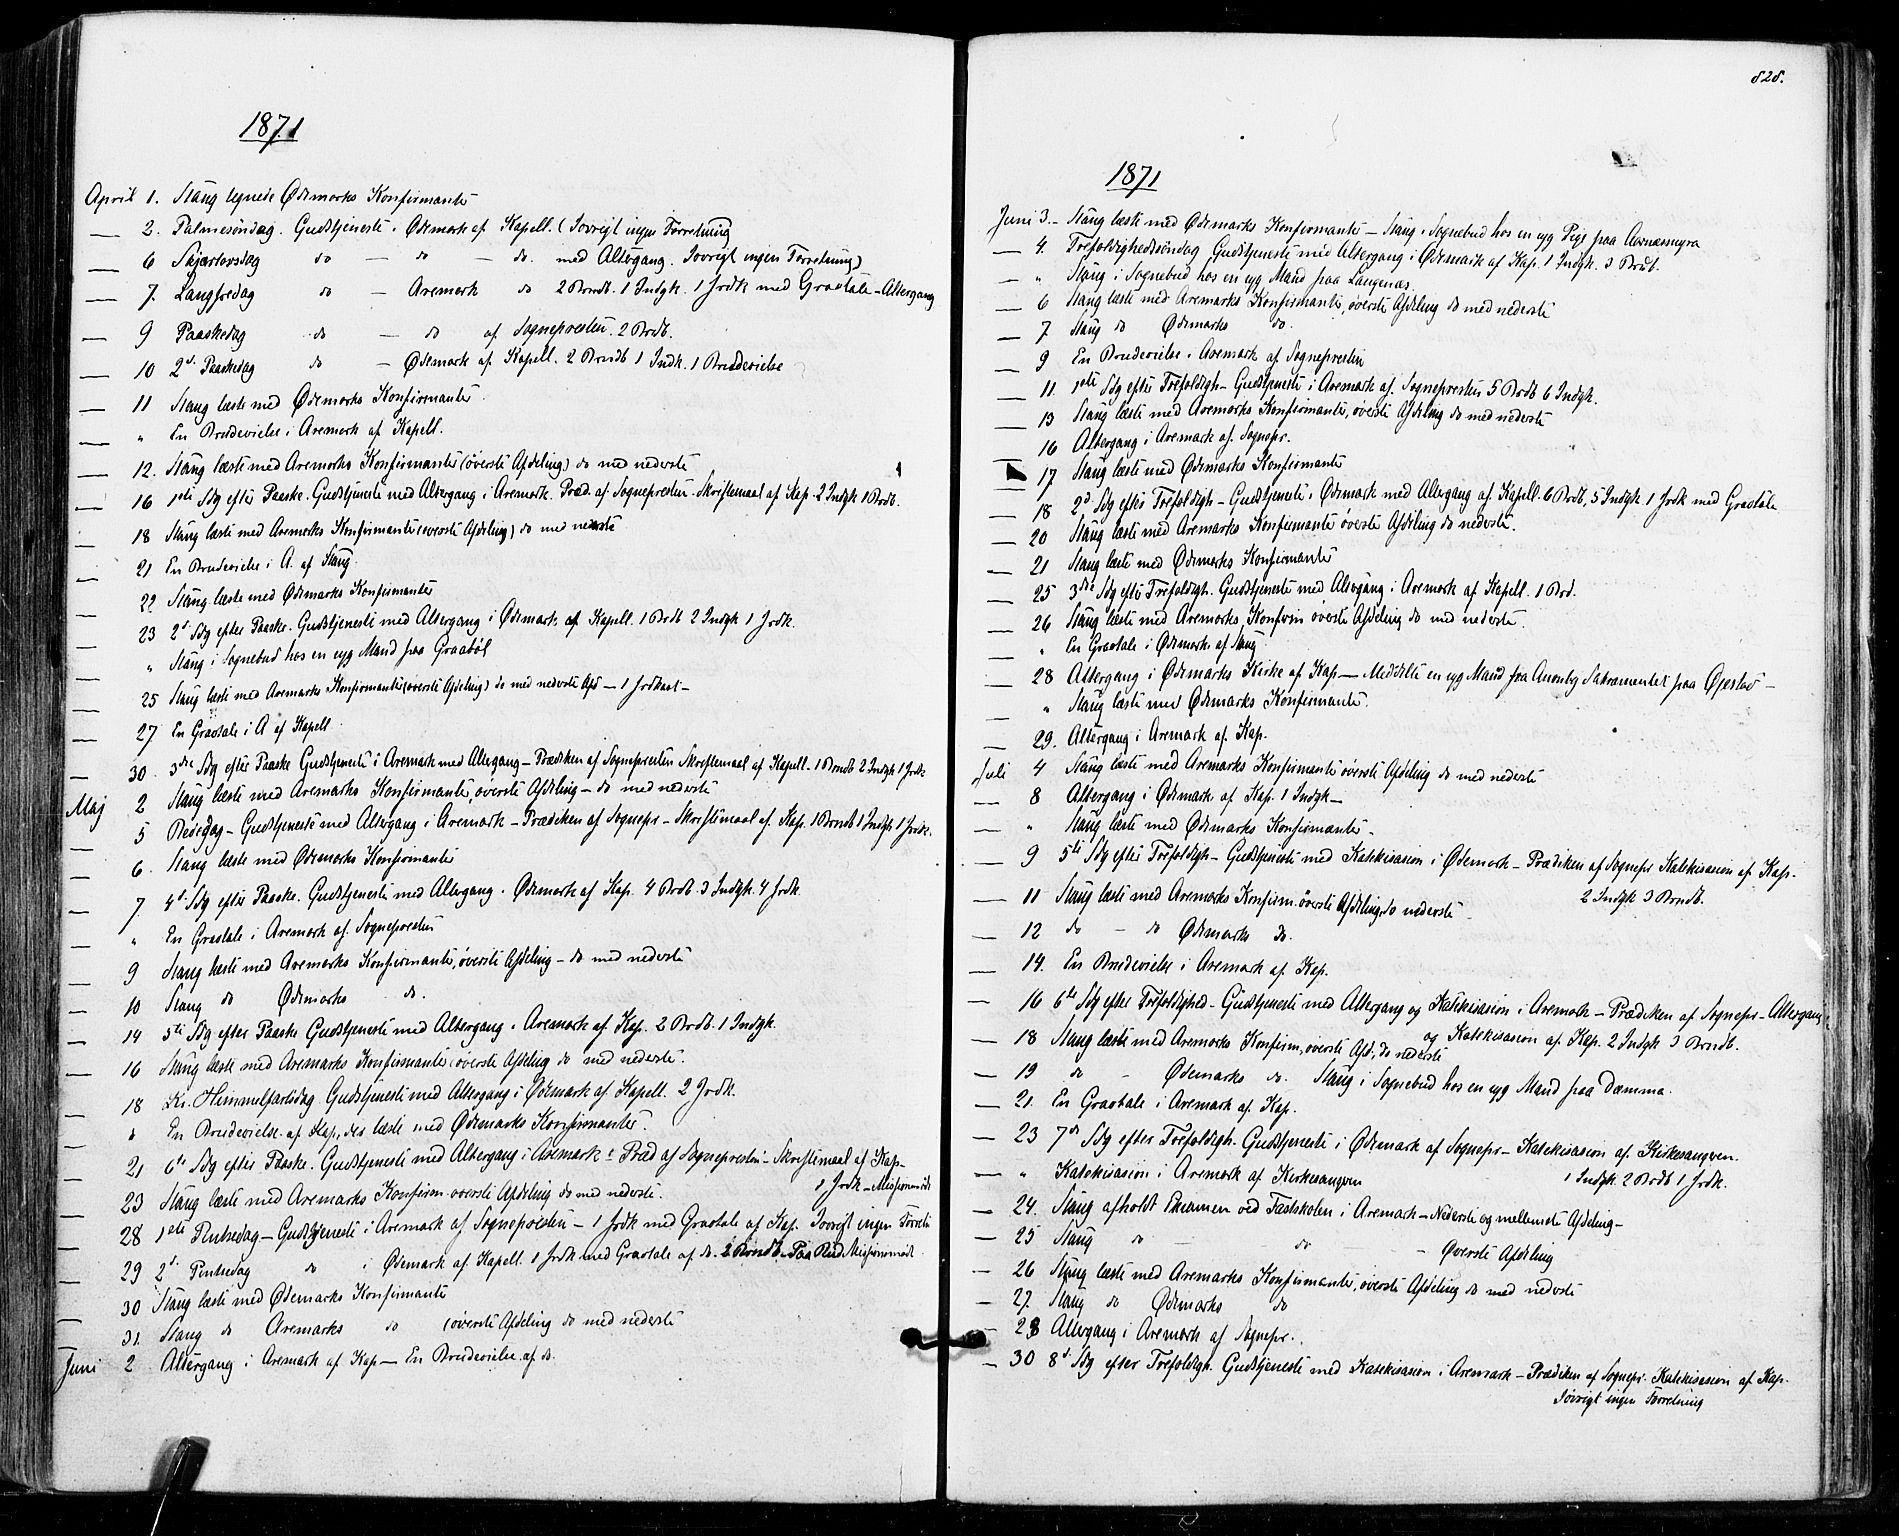 1871
April 1. Stang tegnede Ødemarks Konfirmanter
— 2. Palmesöndag. Gudstjeneste i Ødemark af Kapell. (Iøvrigt ingen Forretning)
— 6 Skjærtorsdag do — do — do. med Altergang. Iøvrigt ingen Forretning)
— 7. Langfredag do — Aremark do 2 Brndb. 1 Indgk. 1 Jrdk med Gravtale – Altergang
— 9 Paaskedag do — do af Sognepresten. 2 Brdb.
— 10 2d. Paaskedag do — Ødemark af Kapell. 2 Brndb 1 Indk. 1 Brudevielse
— 11 Stang læste med Ødemarks Konfirmanter.
— " En Brudevielse i Aremark af Kapell.
— 12. Stang læste med Aremarks Konfirmanter (överste Afdeling) do med nederste
— 16 1ste Sdg efter Paaske. Gudstjeneste med Altergang i Aremark. Præd. af Sognepresten. Skriftemaal af Kap. 2 Indgk 1 Brdb.
— 18 Stang læste med Aremarks Konfirmanter (överste Afdeling) do med nederste
— 21 En Brudevielse i A. af Stang
— 22 Stang læste med Ødemarks Konfirmanter
— 23 2d. Sdg efter Paaske. Gudstjeneste med Altergang i Ødemark af Kapell. 1 Brdb 2 Indgk 1 Jrdk.
— " Stang i Sognebud hos en syg Mand paa Graaböl
— 25 Stang læste med Aremarks Konfirmanter (överste Afdeling) do med nederste Afd — 1 Jrdkast –
— 27 En Gravtale i A af Kapell
— 30. 3die Sdg efter Paaske Gudstjeneste i Aremark med Altergang – Prædiken af Sognepresten Skriftemaal af Kapell. 1 Brndb 2 Indgk 1 Jrdk
Maj 2 Stang læste med Aremarks Konfirmanter, överste Afdeling – do med nederste
— 5 Bededag – Gudstjeneste med Altergang i Aremark – Prædiken af Sognepr – Skriftemaal af Kap. 1 Brndb 1 Indgk 1 Jrdk.
— 6. Stang læste med Ødemarks Konfirmanter
— 7. 4d. Sdg efter Paaske. Gudstjeneste med Altergang i Ødemark af Kap. 4 Brdb. 3 Indgk. 4 Jrdk
— " En Gravtale i Aremark af Sognepresten
— 9 Stang læste med Aremarks Konfirmanter, överste Afdeling – do med nederste
— 10 Stang do Ødemarks do.
— 14 5te Sdg efter Paaske Gudstjeneste med Altergang i Aremark af Kap. 2 Brdb. 1 Indgk.
— 16 Stang læste med Aremarks Konfirmanter överste Afdeling do med nederste.
— 18 Kr. Himmelfartsdag. Gudstjeneste med Altergang i Ødemark af Kapell. 2 Jrdk.
— " En Brudevielse af Kap., læste med Ødemarks Konfirmanter.
— 21 6te Sdg efter Paaske. Gudstjeneste med Altergang i Aremark. Præd af Sognepresten – Skriftemaal af Kap –
1 Jrdk – Missionsmöde
— 23 Stang læste med Aremarks Konfirm. överste Afdeling do med nederste.
— 28 1ste Pintsedag – Gudstjeneste i Aremark af Sognepresten – 1 Jrdk med Gravtale af Kap. Iøvrigt ingen Forretn
— 29 2d. Pintsedag do i Ødemark af Kapell. 1 Jrdk med Gravtale af do. 2 Brndb. Paa Rud Missionsmöde
— 30 Stang læste med Ødemarks Konfirmanter
— 31. Stang do Aremarks do (överste Afdeling do med nederste
Juni 2 Altergang i Aremark af Kap — En Brudevielse af do.
828.
1871
Juni 3. – Stang læste med Ødemarks Konfirmanter – Stang i Sognebud hos en syg Pige paa
— 4. Trefoldighedssöndag Gudstjeneste med Altergang i Ødemark af Kap. 1 Indgk. 3 Brdb.
— " Stang i Sognebud hos en syg Mand paa Langenæs.
— 6 Stang læste med Aremarks Konfirmanter, överste Afdeling do med nederste
— 7 Stang do Ødemarks do.
— 9 En Brudevielse i Aremark af Sognepresten
— 11. 1ste Sdg efter Trefoldigh – Gudstjeneste i Aremark af Sognepresten 5 Brdb 6 Indgk.
— 13 Stang læste med Aremarks Konfirmanter, överste Afdeling do med nederste
— 16 Altergang i Aremark af Sognepr.
— 17 Stang læste med Ødemarks Konfirmanter
— 18 2d. Sdg efter Trefoldigh – Gudstjeneste i Ødemark med Altergang af Kapell. 6 Brdb, 5 Indgk 1 Jrdk med Gravtale
— 20 Stang læste med Aremarks Konfirmanter överste Afdeling do nederste.
— 21 Stang læste med Ødemarks Konfirmanter
— 25 3die Sdg efter Trefoldigh. Gudstjeneste med Altergang i Aremark af Kapell. 1 Brd.
— 26 Stang læste med Aremarks Konfirm överste Afdeling do med nederste.
— " En Gravtale i Ødemark af Stang
— 28 Altergang i Ødemarks Kirke af Kap — Meddelte en syg Mand fra Sakramentet paa Øjestad –
— " Stang læste med Ødemarks Konfirmanter.
— 29. Altergang i Aremark af Kap.
Juli 4 Stang læste med Aremarks Konfirmanter överste Afdeling do med nederste
— 8 Altergang i Ødemark af Kap. 1 Indgk –
— " Stang læste med Ødemarks Konfirmanter –
— 9 5te Sdg efter Trefoldigh – Gudstjeneste med Katekisasion i Ødemark – Prædiken af Sognepr Katekisasion af Kap.
2 Indgk 3 Brndb.
— 11 Stang læste med Aremarks Konfirm. överste Afdeling do nederste
— 12 do – do Ødemarks do.
— 14. En Brudevielse i Aremark af Kap.
— 16 6te Sdg efter Trefoldighed – Gudstjeneste med Altergang og Katekisasion i Aremark – Prædiken af Sognepr – Altergang
og Katekisasion af Kap. 2 Indgk 3 Brndb.
— 18 Stang læste med Aremarks Konfirm, överste Afd, do nederste
— 19 do – Ødemarks do. Stang i Sognebud hos en syg Mand paa Damma.
— 21. En Gravtale i Aremark af Kap.
— 23 7de Sdg efter Trefoldigh. Gudstjeneste i Ødemark af Sognepr – Katekisasion af Kirkesangeren.
— " Katekisasion i Aremark af Kirkesangeren 1 Indgk 2 Brdb 1 Jrdk.
— 24. Stang afholdt Exsamen ved Fastskolen i Aremark – Nederste og mellemste Afdeling –
— 25 Stang do – do – Överste Afdeling
— 26 Stang læste med Aremarks Konfirmanter, överste Afdeling do med nederste
— 27. Stang do Ødemarks do
— 28 Altergang i Aremark af Sognepr.
— 30 8d. Sdg efter Trefoldigh. Gudstjeneste med Katekisasion i Aremark – Prædiken af Sognepr. Katekisasion af Kap.
Iøvrigt ingen Forretning